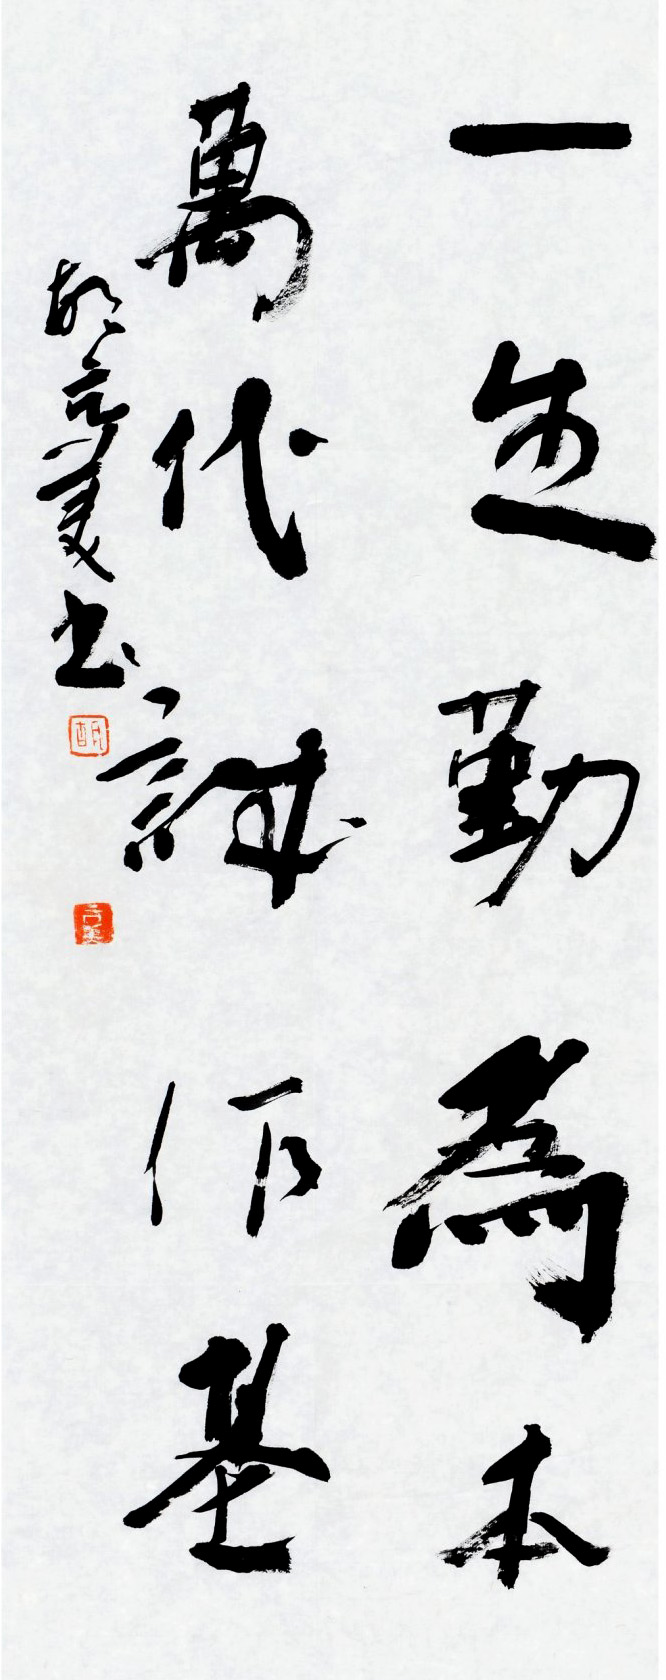 一生勤為本
萬代誠作基
胡 书